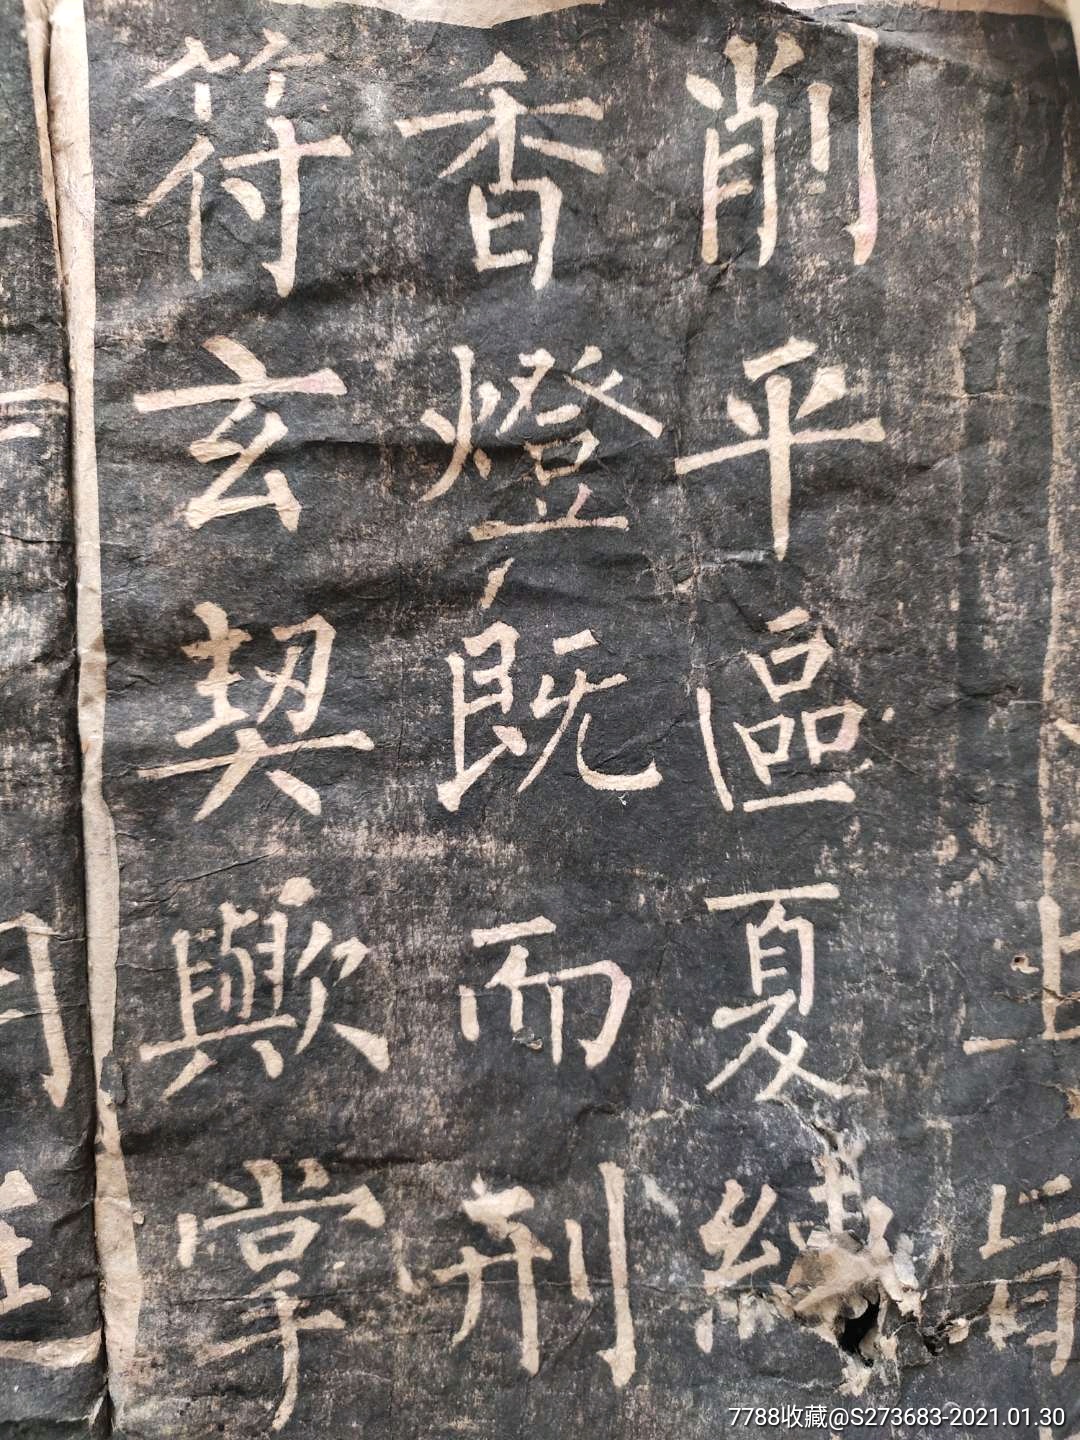 削平區夏
香燈既而刑
符玄契歟掌
7788收藏@S273683-2021.01.30